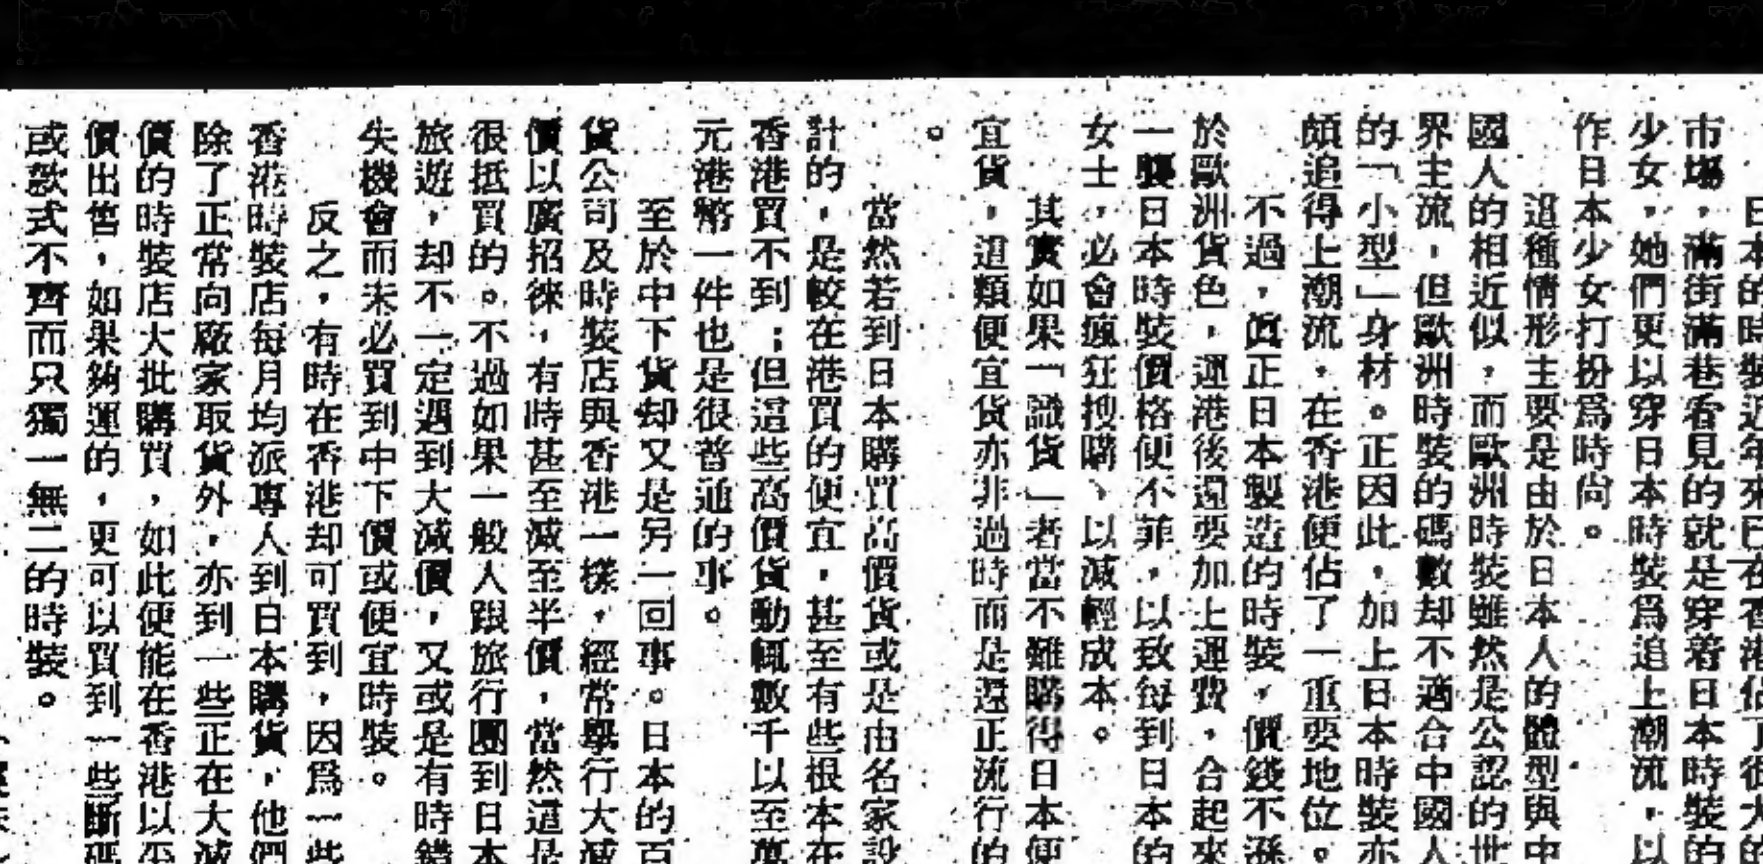 日本的時裝近年來已在香港佔了很大的
市場，滿街滿巷看見的就是穿着日本時裝的
少女，她們更以穿日本時裝爲追上潮流，以
作日本少女打扮爲時尙。
這種情形主要是由於日本人的體型與中
國人的相近似，而歐洲時裝雖然是公認的世
界主流，但歐洲時裝的碼數却不適合中國人
的「小型」身材。正因此，加上日本時裝亦
頗追得上潮流，在香港便佔了一重要地位。
不過，眞正日本製造的時裝，價錢不遜
於歐洲貨色，運港後還要加上運費，合起來
一襲日本時裝價格便不菲，以致每到日本的
女士，必會瘋狂搜購、以減輕成本。
其實如果「識貨」者當不難購得日本便
宜貨，這類便宜貨亦非過時而是還正流行的
。
當然若到日本購買高價貨或是由名家設
計的，是較在港買的便宜，甚至有些根本在
香港買不到；但這些高價貨動輒數千以至萬
元港幣一件也是很普通的事。
至於中下貨却又是另一回事。日本的百
貨公司及時裝店與香港一樣，經常舉行大減
價以廣招徠，有時甚至減至半價，當然這是
很抵買的。不過如果一般人跟旅行團到日本
旅遊，却不一定遇到大減價，又或是有時錯
失機會而未必買到中下價或便宜時裝。
反之，有時在香港却可買到，因爲一些
香港時裝店每月均派專人到日本購貨，他們
除了正常向廠家取貨外，亦到一些正在大減
價的時裝店大批購買，如此便能在香港以平
價出售，如果夠運的，更可以買到一些斷碼
或款式不齊而只獨一無二的時裝。